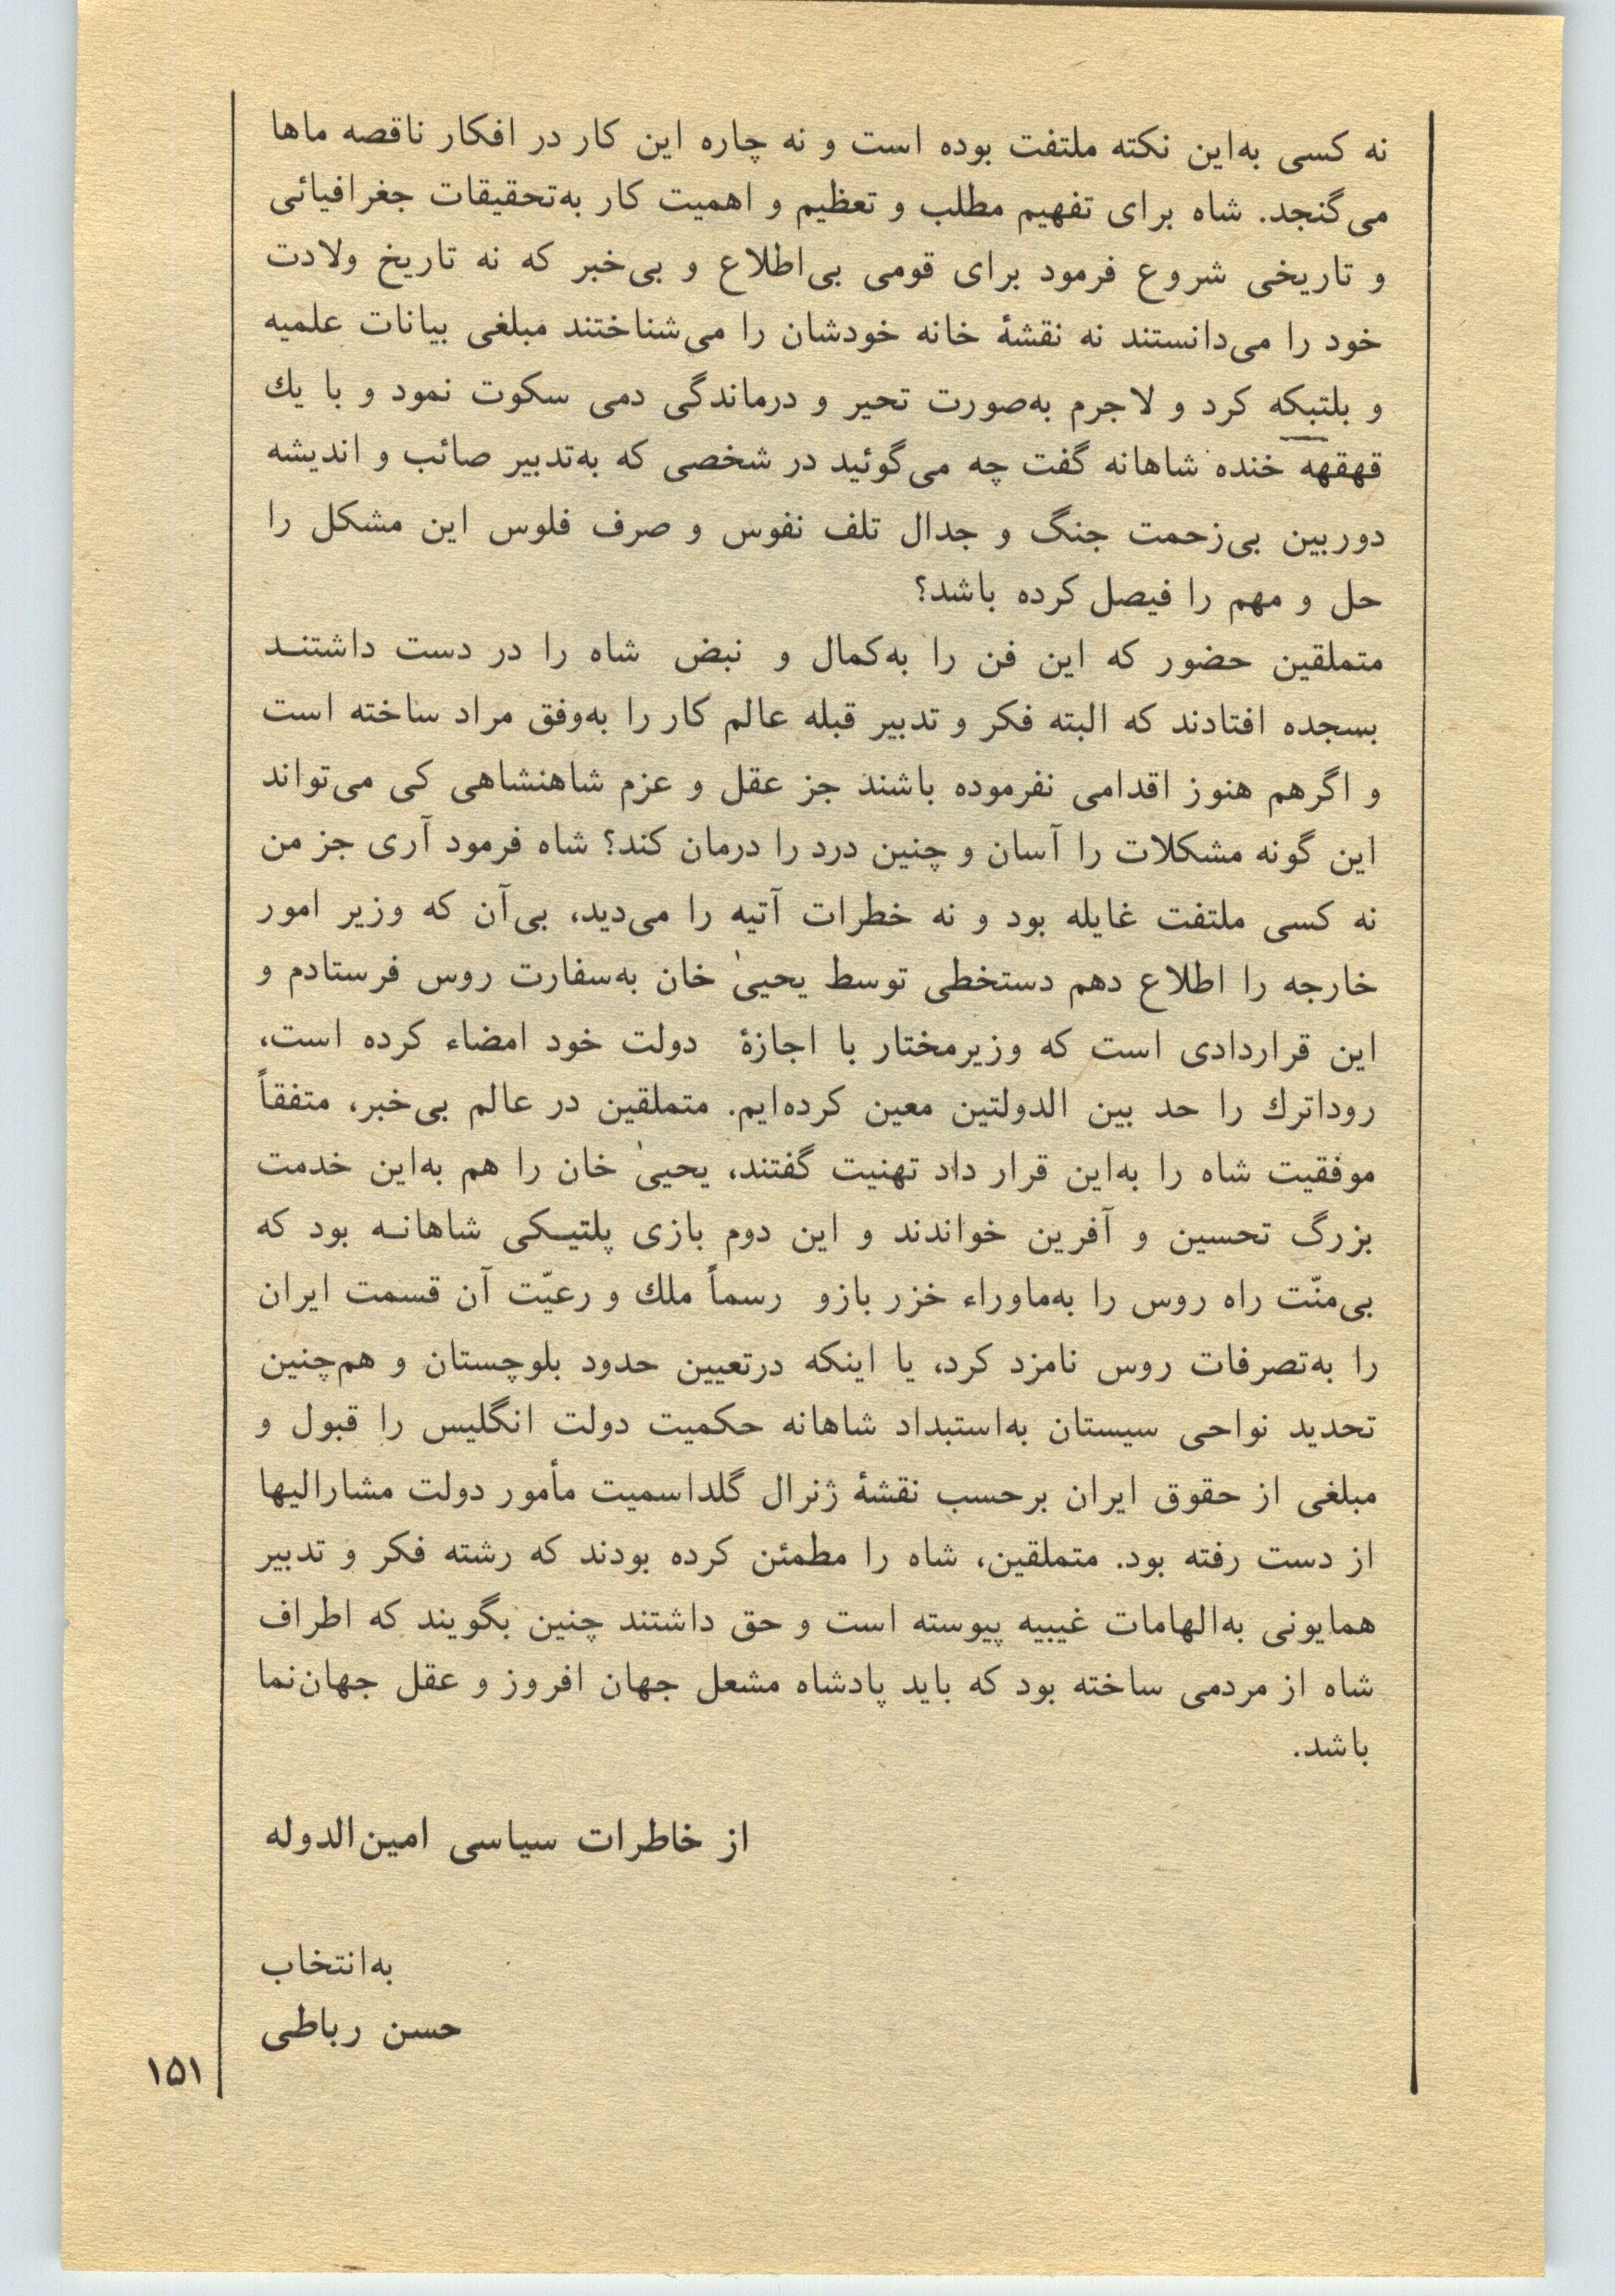 نه کسی به‌این نکته ملتفت بوده است و نه چاره این کار در افکار ناقصه ماها
می‌گنجد. شاه برای تفهیم مطلب و تعظیم و اهمیت کار به‌تحقیقات جغرافیائی
و تاریخی شروع فرمود برای قومی بی‌اطلاع و بی‌خبر که نه تاریخ ولادت
خود را می‌دانستند نه نقشهٔ خانه خودشان را می‌شناختند مبلغی بیانات علمیه
و بلتبکه کرد و لاجرم به‌صورت تحیر و درماندگی دمی سکوت نمود و با یك
قهقهه خنده شاهانه گفت چه می‌گوئید در شخصی که به‌تدبیر صائب و اندیشه
دوربین بی‌زحمت جنگ و جدال تلف نفوس و صرف فلوس این مشکل را
حل و مهم را فیصل کرده باشد؟
متملقین حضور که این فن را به‌کمال و نبض شاه را در دست داشتنـد
بسجده افتادند که البته فکر و تدبیر قبله عالم کار را به‌وفق مراد ساخته است
و اگرهم هنوز اقدامی نفرموده باشند جز عقل و عزم شاهنشاهی کی می‌تواند
این گونه مشکلات را آسان و چنین درد را درمان کند؟ شاه فرمود آری جز من
نه کسی ملتفت غایله بود و نه خطرات آتیه را می‌دید، بی‌آن که وزیر امور
خارجه را اطلاع دهم دستخطی توسط یحییٰ خان به‌سفارت روس فرستادم و
این قراردادی است که وزیرمختار با اجازهٔ دولت خود امضاء کرده است،
روداترك را حد بین الدولتین معین کرده‌ایم. متملقین در عالم بی‌خبر، متفقاً
موفقیت شاه را به‌این قرار داد تهنیت گفتند، یحییٰ خان را هم به‌این خدمت
بزرگ تحسین و آفرین خواندند و این دوم بازی پلتیـکی شاهانـه بود که
بی‌منّت راه روس را به‌ماوراء خزر بازو رسماً ملك و رعیّت آن قسمت ایران
را به‌تصرفات روس نامزد کرد، یا اینکه درتعیین حدود بلوچستان و هم‌چنین
تحدید نواحی سیستان به‌استبداد شاهانه حکمیت دولت انگلیس را قبول و
مبلغی از حقوق ایران برحسب نقشهٔ ژنرال گلداسمیت مأمور دولت مشارالیها
از دست رفته بود. متملقین، شاه را مطمئن کرده بودند که رشته فکر و تدبیر
همایونی به‌الهامات غیبیه پیوسته است و حق داشتند چنین بگویند که اطراف
شاه از مردمی ساخته بود که باید پادشاه مشعل جهان افروز و عقل جهان‌نما
باشد.
از خاطرات سیاسی امین‌الدوله
به‌انتخاب
حسن رباطی
۱۵۱